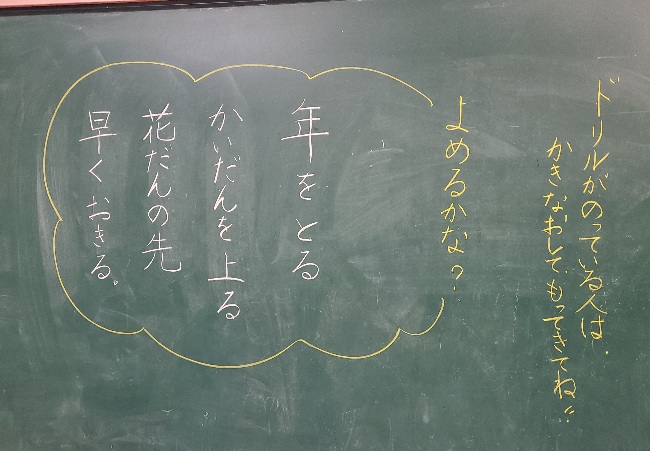 ドリルがのっている人は、
かきなおして、もってきてね!!
よめるかな?
年をとる
かいだんを上る
花だんの先
早くおきる。